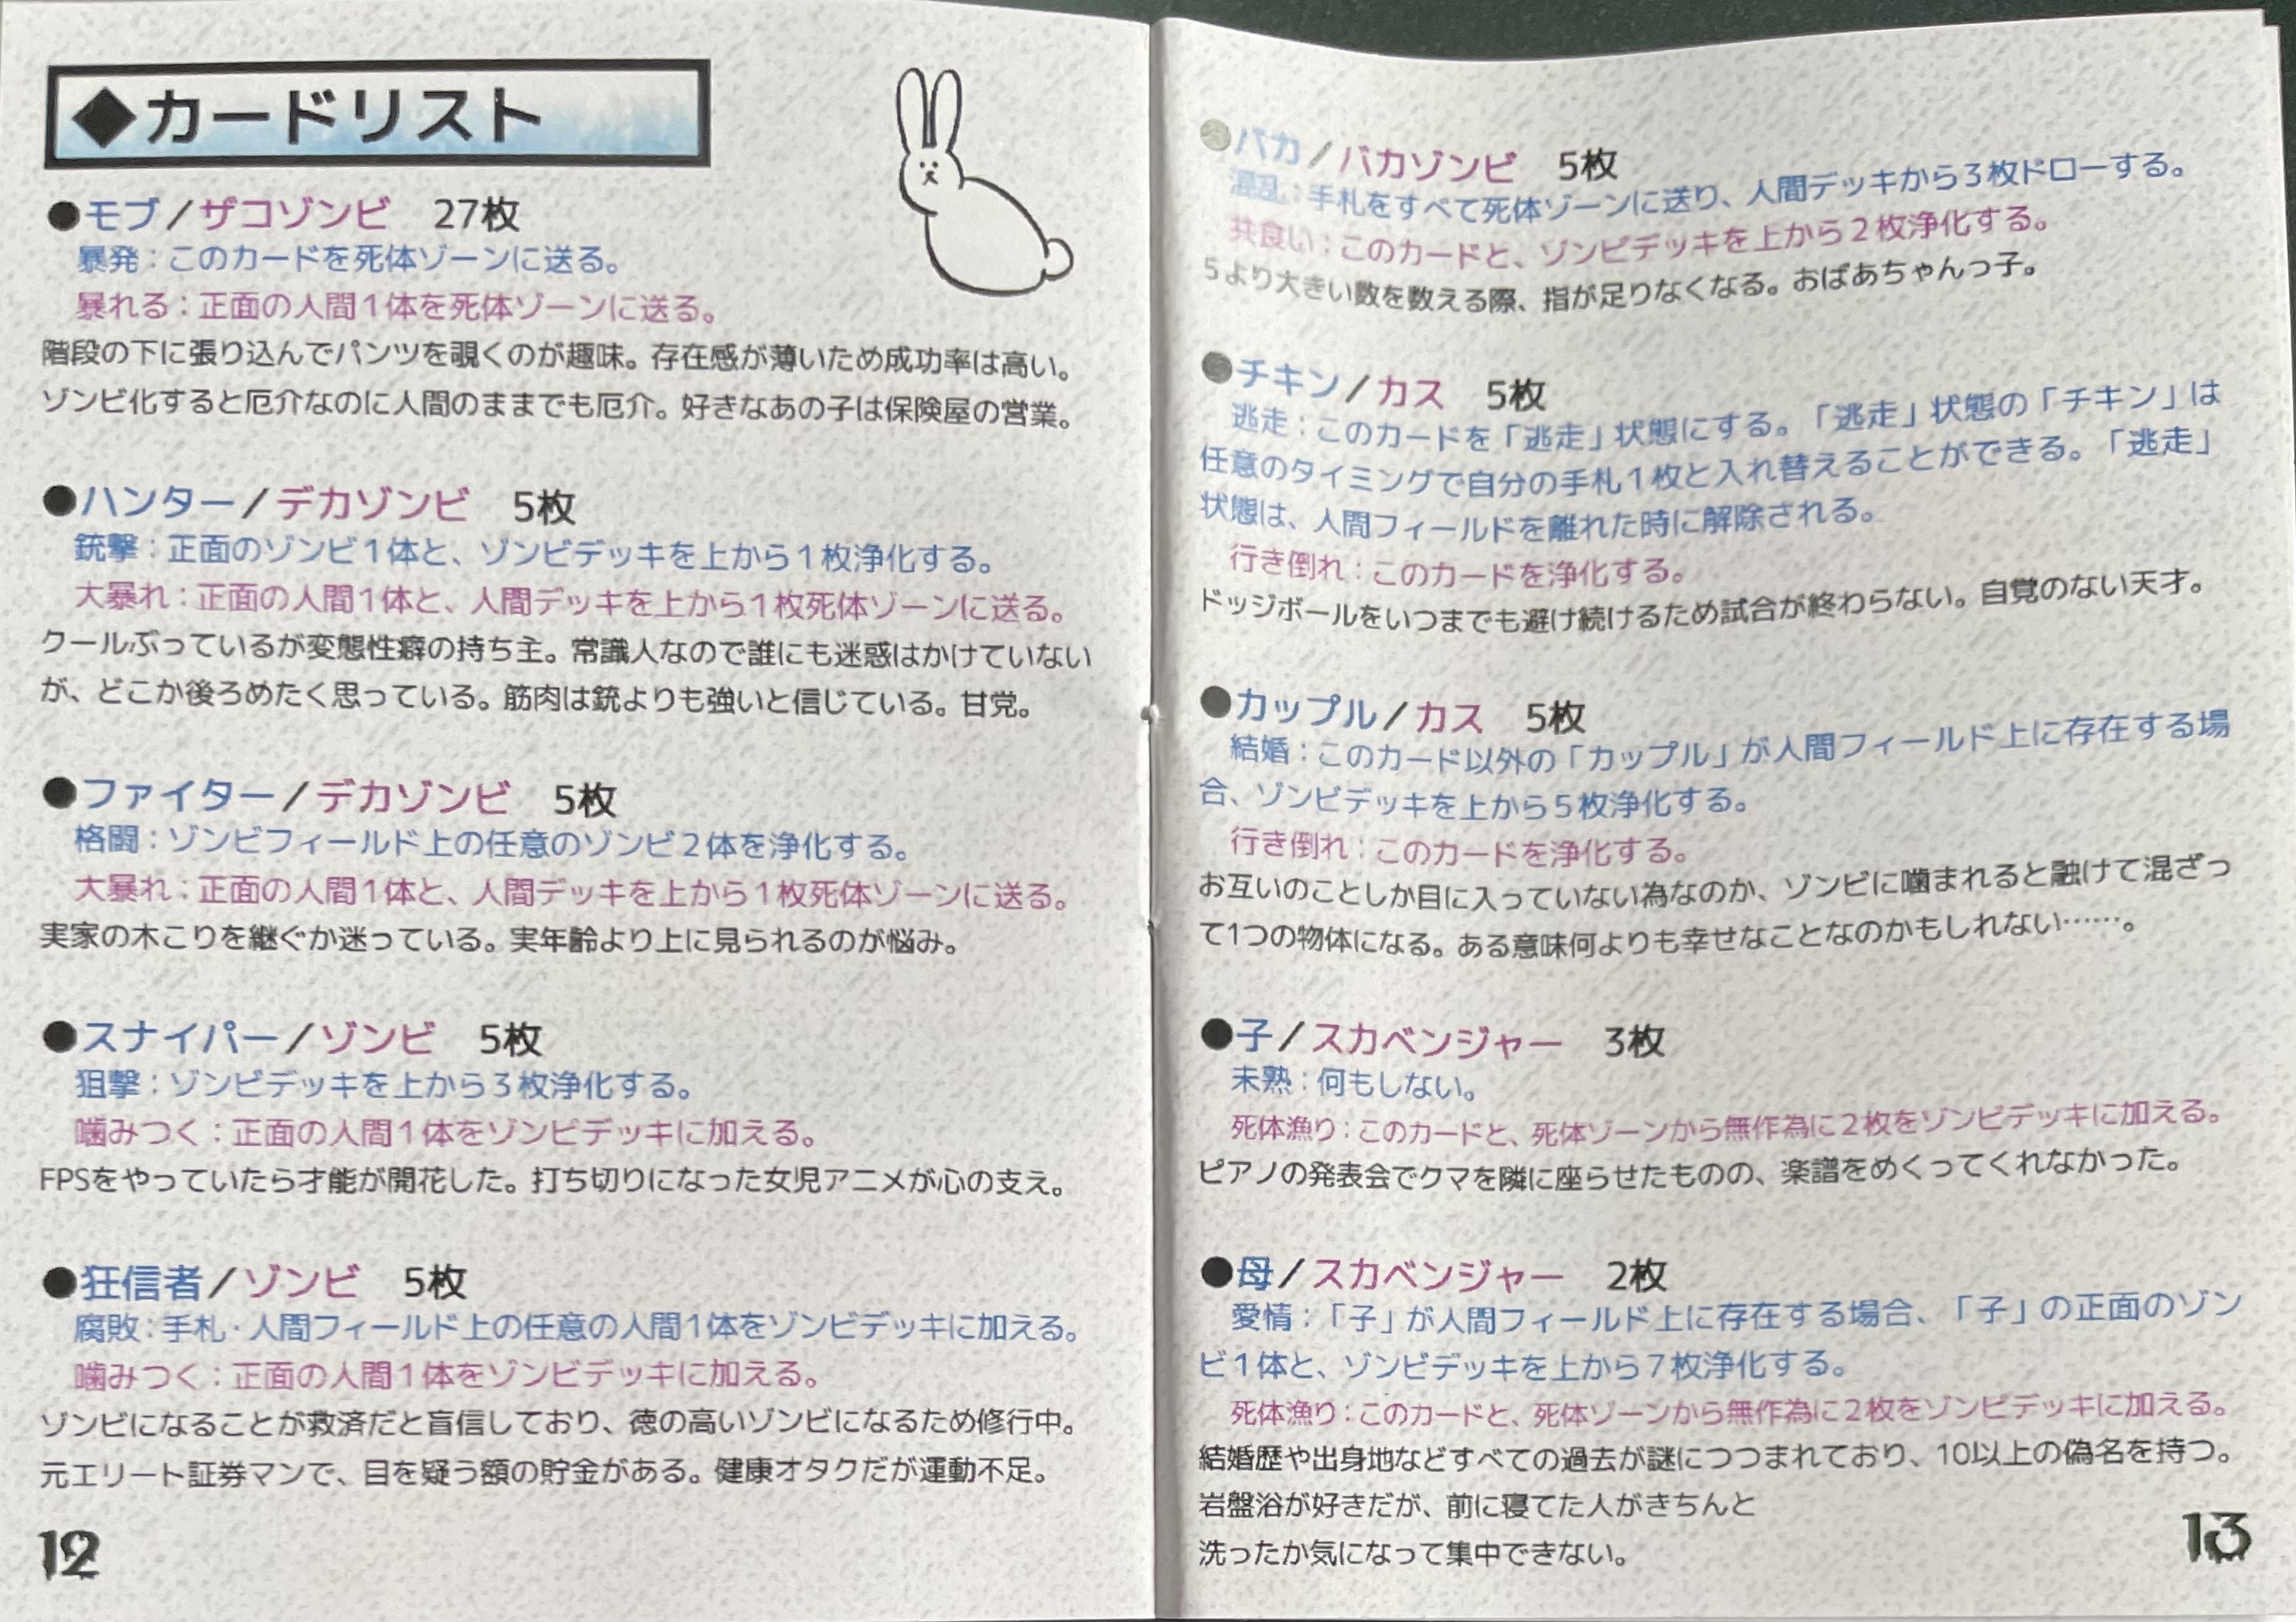 ◆カードリスト
●モブ／ザコゾンビ　27枚
暴発：このカードを死体ゾーンに送る。
暴れる：正面の人間1体を死体ゾーンに送る。
階段の下に張り込んでパンツを覗くのが趣味。存在感が薄いため成功率は高い。
ゾンビ化すると厄介なのに人間のままでも厄介。好きなあの子は保険屋の営業。
●ハンター／デカゾンビ　5枚
銃撃：正面のゾンビ1体と、ゾンビデッキを上から1枚浄化する。
大暴れ：正面の人間1体と、人間デッキを上から1枚死体ゾーンに送る。
クールぶっているが変態性癖の持ち主。常識人なので誰にも迷惑はかけていない
が、どこか後ろめたく思っている。筋肉は銃よりも強いと信じている。甘党。
●ファイター／デカゾンビ　5枚
格闘：ゾンビフィールド上の任意のゾンビ2体を浄化する。
大暴れ：正面の人間1体と、人間デッキを上から1枚死体ゾーンに送る。
実家の木こりを継ぐか迷っている。実年齢より上に見られるのが悩み。
●スナイパー／ゾンビ　5枚
狙撃：ゾンビデッキを上から3枚浄化する。
噛みつく：正面の人間1体をゾンビデッキに加える。
FPSをやっていたら才能が開花した。打ち切りになった女児アニメが心の支え。
●狂信者／ゾンビ　5枚
腐敗：手札・人間フィールド上の任意の人間1体をゾンビデッキに加える。
噛みつく：正面の人間1体をゾンビデッキに加える。
ゾンビになることが救済だと盲信しており、徳の高いゾンビになるため修行中。
元エリート証券マンで、目を疑う額の貯金がある。健康オタクだが運動不足。
12
●バカ／バカゾンビ　5枚
混乱：手札をすべて死体ゾーンに送り、人間デッキから3枚ドローする。
共食い：このカードと、ゾンビデッキを上から2枚浄化する。
5より大きい数を数える際、指が足りなくなる。おばあちゃんっ子。
●チキン／カス　5枚
逃走：このカードを「逃走」状態にする。「逃走」状態の「チキン」は
任意のタイミングで自分の手札1枚と入れ替えることができる。「逃走」
状態は、人間フィールドを離れた時に解除される。
行き倒れ：このカードを浄化する。
ドッジボールをいつまでも避け続けるため試合が終わらない。自覚のない天才。
●カップル／カス　5枚
結婚：このカード以外の「カップル」が人間フィールド上に存在する場
合、ゾンビデッキを上から5枚浄化する。
行き倒れ：このカードを浄化する。
お互いのことしか目に入っていない為なのか、ゾンビに噛まれると融けて混ざっ
て1つの物体になる。ある意味何よりも幸せなことなのかもしれない……。
●子／スカベンジャー　3枚
未熟：何もしない。
死体漁り：このカードと、死体ゾーンから無作為に2枚をゾンビデッキに加える。
ピアノの発表会でクマを隣に座らせたものの、楽譜をめくってくれなかった。
●母／スカベンジャー　2枚
愛情：「子」が人間フィールド上に存在する場合、「子」の正面のゾン
ビ1体と、ゾンビデッキを上から7枚浄化する。
死体漁り：このカードと、死体ゾーンから無作為に2枚をゾンビデッキに加える。
結婚歴や出身地などすべての過去が謎につつまれており、10以上の偽名を持つ。
岩盤浴が好きだが、前に寝てた人がきちんと
洗ったか気になって集中できない。
13